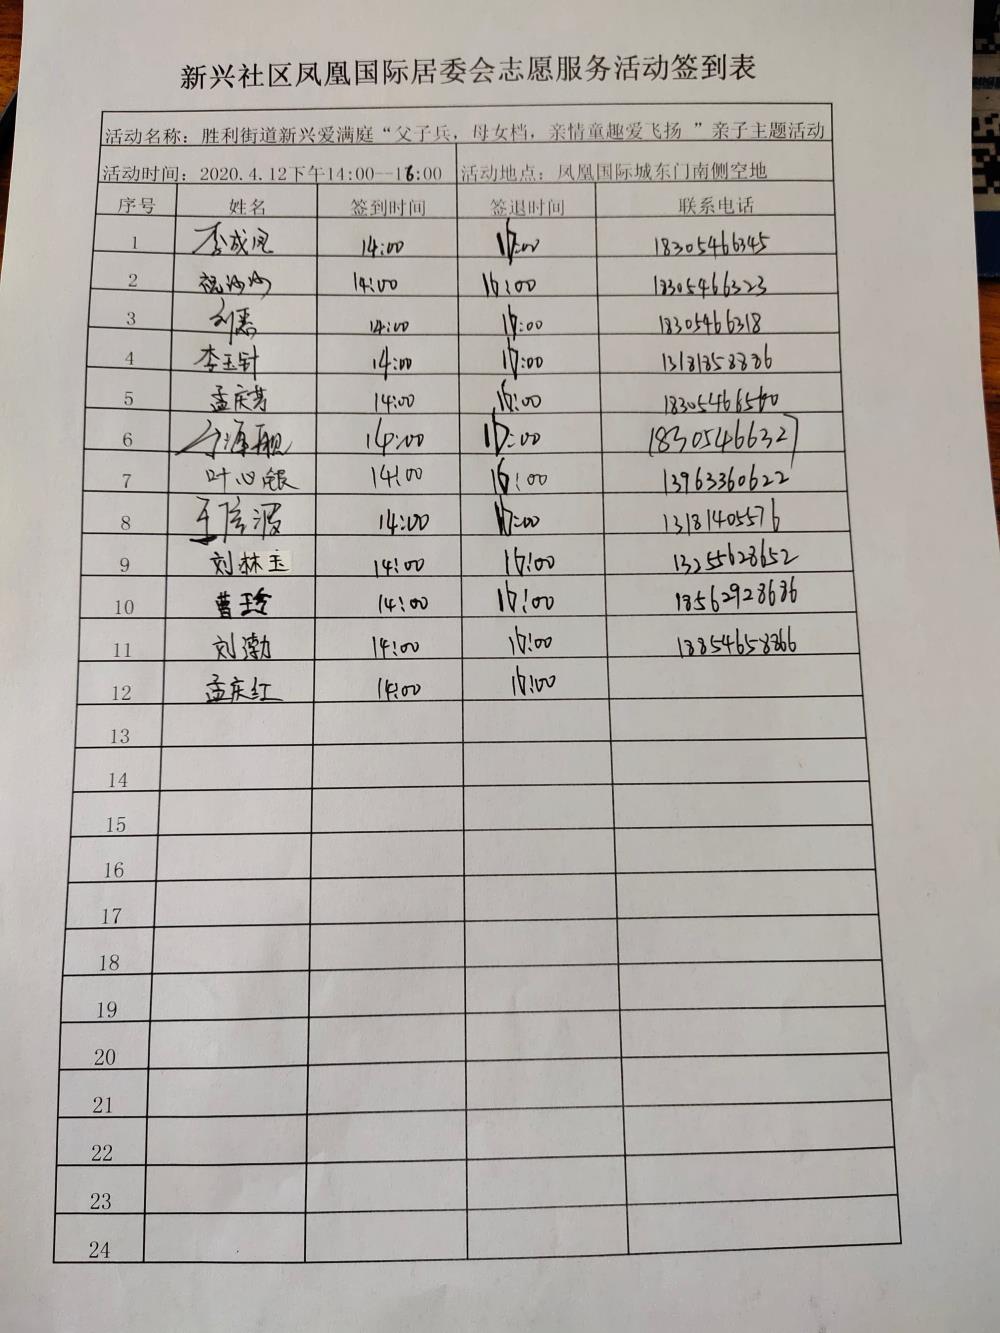 新兴社区凤凰国际居委会志愿服务活动签到表
活动名称：胜利街道新兴爱满庭“父子兵，母女档，亲情童趣爱飞扬 ”亲子主题活动
活动时间：2020.4.12下午14:00--16:00 活动地点：凤凰国际城东门南侧空地
序号 姓名 签到时间 签退时间 联系电话
1 李成凤 14:00 16:00 18305466345
2 祝沙沙 14:00 16:00 18305466323
3 14:00 16:00 18305466318
4 李玉针 14:00 16:00 13181858886
5 孟庆芳 14:00 16:00 18305466560
6 14:00 16:00 18305466327
7 叶心银 14:00 16:00 13963360622
8 14:00 16:00 13181405576
9 刘林玉 14:00 16:00 13255628652
10 曹玉玲 14:00 16:00 18562928686
11 刘渤 14:00 16:00 18854658866
12 孟庆红 14:00 16:00
13
14
15
16
17
18
19
20
21
22
23
24